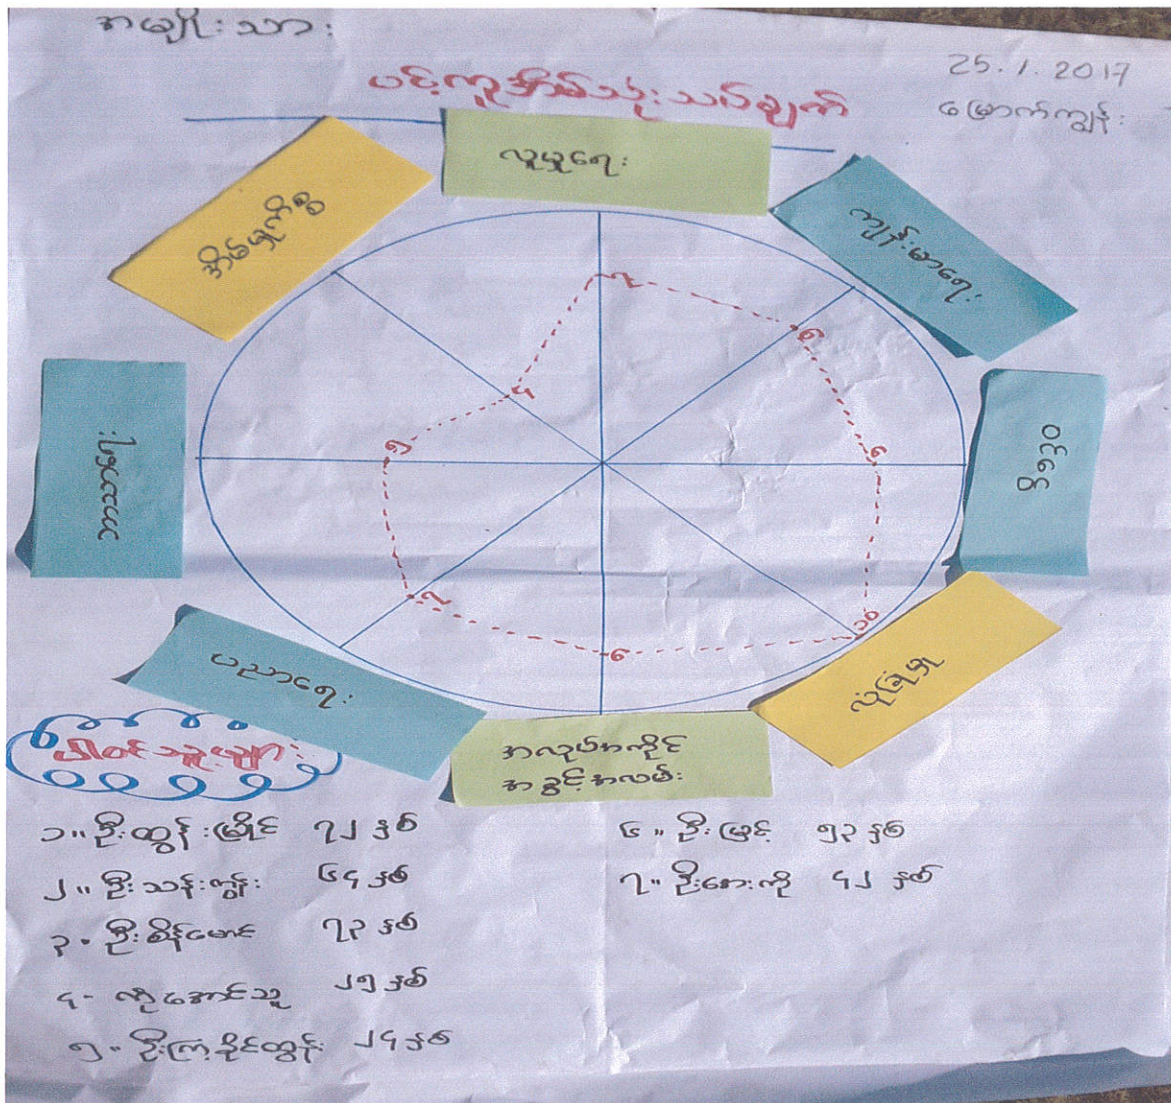 အမျိုးသား
25.1.2017
မြောက်ကျွန်း
ပင့်ကူအိမ်သုံးသပ်ချက်
လူမှုရေး
ကျန်းမာရေး
ဝင်ငွေ
လုံခြုံမှု
အလုပ်အကိုင်
အခွင့်အလမ်း
ပညာရေး
အိမ်မှုကိစ္စ
၇
၆
၆
၁၀
၆
၇
၅
၄
ပါဝင်သူများ
၁။ ဦးထွန်းမြိုင် ၇၂ နှစ်
၂။ ဦးသန်းကျွန်း ၆၄ နှစ်
၃။ ဦးစိန်မောင် ၇၃ နှစ်
၄- ကိုအောင်သူ ၂၅ နှစ်
၅။ ဦးကြံ့ခိုင်ထွန်း ၂၄ နှစ်
၆။ ဦးမြင့် ၅၃ နှစ်
၇။ ဦးစောကို ၄၂ နှစ်